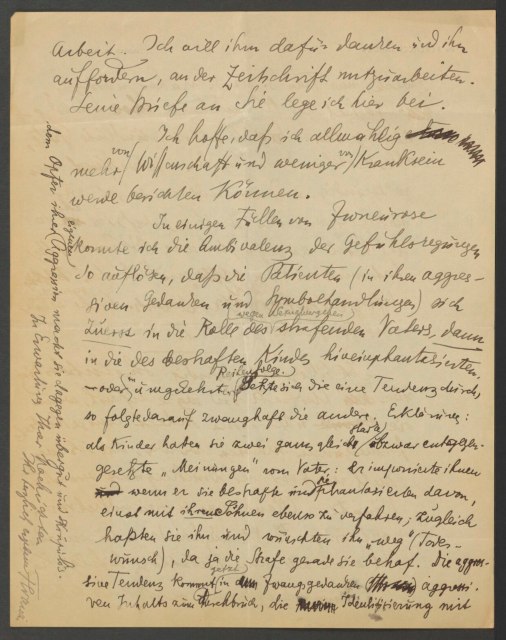 Arbeit. Ich will ihm dafür danken und ihn
auffordern, an der Zeitschrift mitzuarbeiten.
Seine Briefe an Sie lege ich hier bei.
Ich hoffe, daß ich allmählig
mehr von Wissenschaft und weniger von Kranksein
werde berichten können.
In einigen Fällen von Zwneurose
konnte ich die Ambivalenz der Gefühlsregungen
so auflösen, daß die Patienten (in ihren aggres-
siven Gedanken und Symbolhandlungen) sich
zuerst in die Rolle des strafenden Vaters, dann
in die des bestraften Kindes hineinphantasierten.
– oder umgekehrt. Setzte sich die eine Tendenz durch,
so folgte darauf zwanghaft die andere. Erklärung:
als Kinder haben sie zwei ganz gleich starke (obzwar entgegen-
gesetzte „Meinungen" vom Vater: Er imponierte ihnen
wenn er sie bestrafte und sie phantasierten davon,
einst mit ihren Söhnen ebenso zu verfahren; zugleich
haßten sie ihn und wünschten ihn „weg" (Todes-
wunsch), da ja die Strafe gerade sie betraf. Die aggres-
sive Tendenz kommt jetzt in Zwangsgedanken aggressi-
ven Inhalts zum Durchbruch, die Identifizierung mit
dem Opfer ihrer eigenen Aggression macht sie dagegen übergut und
In Erwartung Ihrer Nachrichten
Ihr